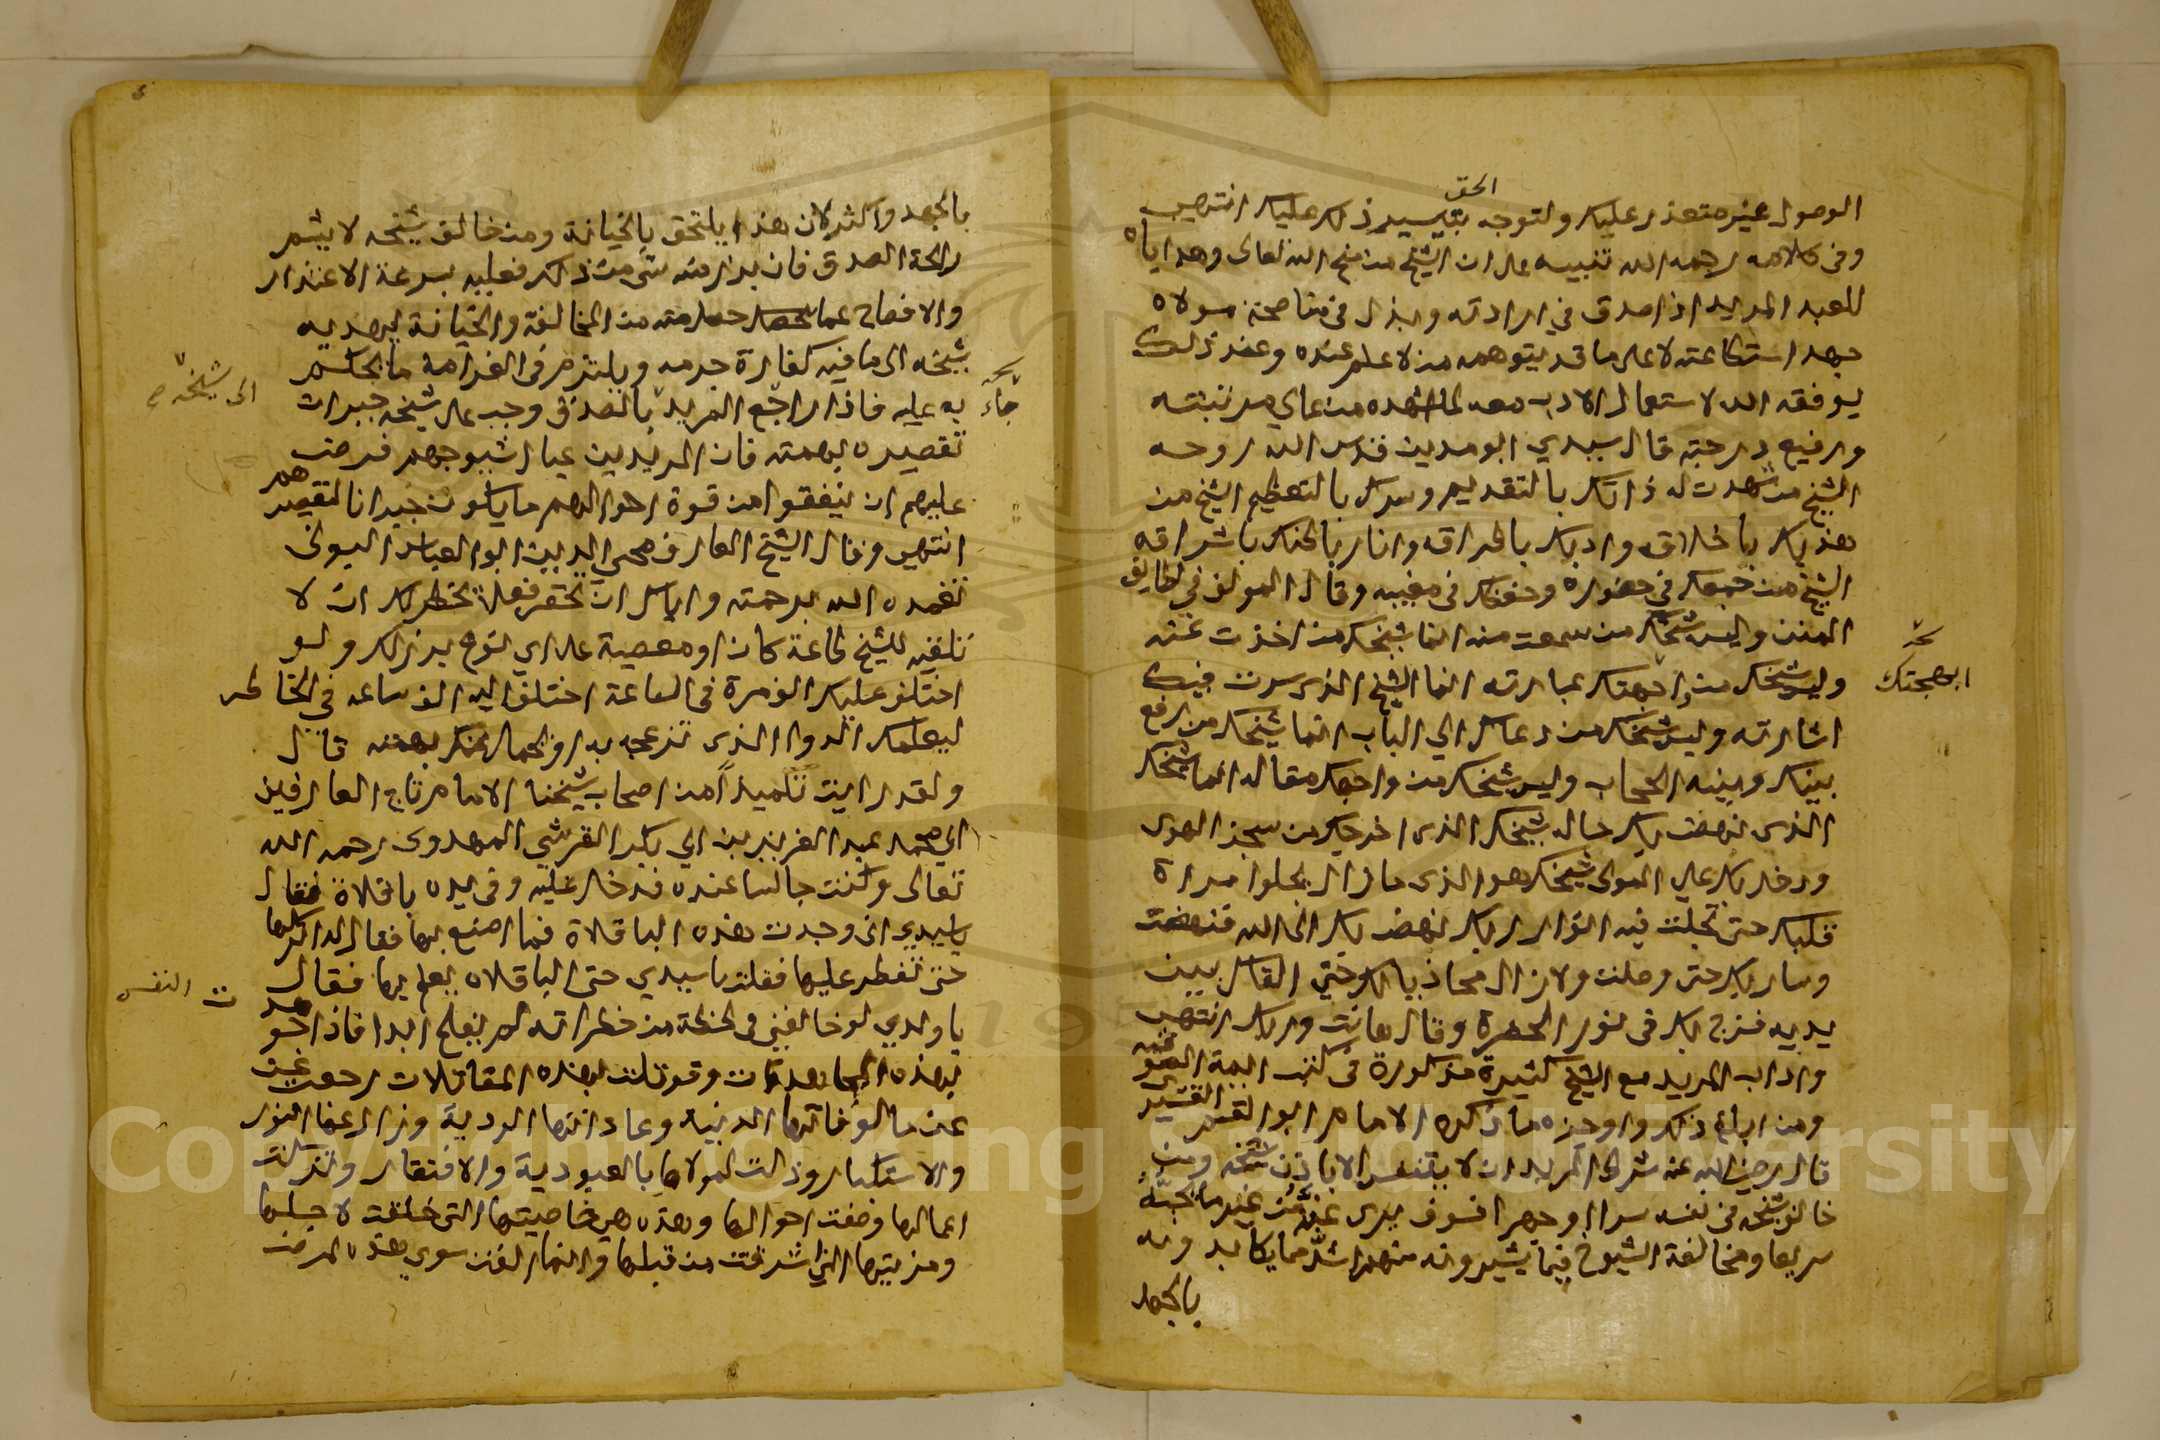 الحق
الوصول غير متعذر عليك والتوجه بتيسير ذلك عليك انتهى
وفي كلامه رحمه الله تنبيه على ان الشيخ من منح الله تعالى وهداياه
للعبد المريد اذا صدق في ارادته وبذل في مناصحة مولاه
جهد استطاعته لا على ما قد يتوهمه من لا علم عنده وعند ذلك
يوفقه الله لاستعمال الادب معه لما اشهده من عالي مرتبته
ورفيع درجته قال سيدي ابو مدين قدس الله روحه
الشيخ من شهدت له ذاتك بالتقديم وسرك بالتعظيم الشيخ من
هذبك باخلاقه وادبك باطراقه وانار باطنك باشراقه
الشيخ من جمعك في حضوره وحفظك في مغيبه وقال المولف في لطايف
المنن وليس شيخك من سمعت منه انما شيخك من اخذت عنه
وليس شيخك من واجهتك عبارته انما الشيخ الذي سرت فيك
اشارته وليس شيخك من دعاك الي الباب انما شيخك من رفع
بينك وبينه الحجاب وليس شيخك من واجهك مقاله انما شيخك
الذي نهض بك حاله شيخك الذي اخرجك من سجن الهوى
ودخل بك على المولى شيخك هو الذي ما زال يجلوا مراة
قلبك حتى تجلت فيه انوار ربك نهض بك الى الله فنهضت
وسار بك حتى وصلت ولا زال محاذيا لك حتى القاك بين
يديه فزج بك في نور الحضرة وقال ها انت وربك انتهى
واداب المريد مع الشيخ كثيرة مذكورة في كتب ايمة الصوفيه
ومن ابلغ ذلك واوجزه ما ذكره الامام ابو القسم القشيري
قال رضي الله عنه شرط المريد ان لا يتنفس الا باذن شيخه ومن
خالف شيخه في نفسه سرا او جهرا فسوف يرى غبه من غير ما يحبه
سريعا ومخالفة الشيوخ فيما يشيرونه منهم اشد مما يكابدونه
بالجهد
ابهجتك
بالجهد واكثر لان هذا يلتحق بالخيانة ومن خالف شيخه لا يشم
رايحة الصدق فان بدر منه شي من ذلك فعليه بسرعة الاعتذار
والافصاح عما حصل منه من المخالفة والخيانة ليهديه
شيخه الى ما فيه كفارة جرمه ويلتزم في الغرامة ما يحكم
به عليه فاذا راجع المريد بالصدق وجب على شيخه جبران
تقصيره بهمته فان المريدين عيال الشيوخ فرض
عليهم ان ينفقوا من قوة احوالهم ما يكون جبرانا لتقصيرهم
انتهى وقال الشيخ العارف محي الدين ابو العباس البوني
تغمده الله برحمته واياك ان تحقر فعلا يخطر لك ان لا
تلقيه للشيخ طاعة كان او معصية على اي نوع برز لك ولو
اختلف عليك الف مرة في الساعة اختلف اليه الف ساعة في الخاطر
ليعلمك الدوا الذي تزعجه به او يحمل عنك بهمته قال
ولقد رايت تلميذا من اصحاب شيخنا الامام تاج العارفين
ابي محمد عبد العزيز بن ابي بكر القرشي المهدوي رحمه الله
تعالى وكنت جالسا عنده فدخل عليه وفي يده باقلاة فقال
ياسيدي اني وجدت هذه الباقلاة فما اصنع بها فقال له اتركها
حتى تفطر عليها فقلت ياسيدي حتى الباقلاه يعلم بها فقال
يا ولدي لو خالفني في لحظة من خطراته لم يفلح ابدا فاذا
بهذه المجاهدات وقوتلت بهذه المقاتلات رجعت
عن مالوفاتها الدنيه وعاداتها الردية وزال عنها النفور
والاستكبار وذلت لمولاها بالعبودية والافتقار وتزكت
اعمالها وصفت احوالها وهذه هي خاصيتها التي خلقت لاجلها
ومزيتها التي شرفت من قبلها وانما الفت سوى هذه لمرض
الى شيخه
النفس